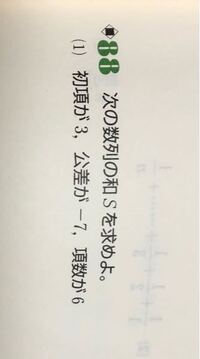 88 次の数列の和 S を求めよ。
(1) 初項が 3, 公差が −7, 項数が 6